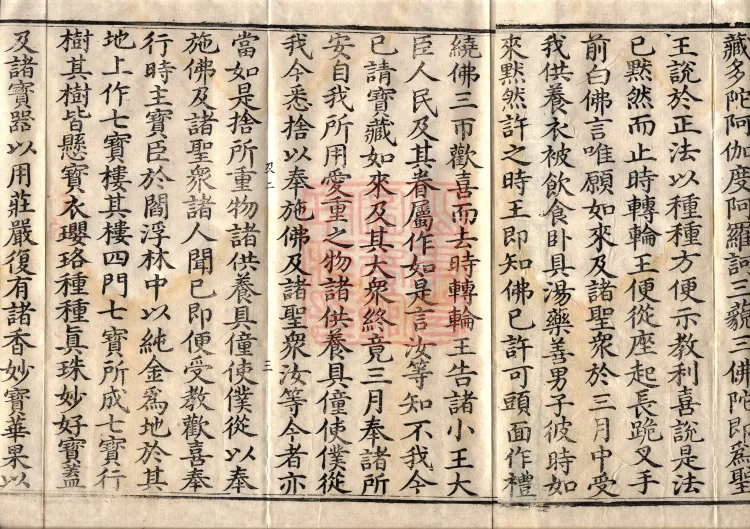 藏多陀阿伽度阿羅訶三藐三佛陀即爲聖
王說於正法以種種方便示教利喜說是法
已默然而止時轉輪王便從座起長跪叉手
前白佛言唯願如來及諸聖衆於三月中受
我供養衣被飲食卧具湯藥善男子彼時如
來黙然許之時王即知佛已許可頭面作禮
繞佛三帀歡喜而去時轉輪王告諸小王大
臣人民及其眷屬作如是言汝等知不我今
已請寶藏如來及其大衆終竟三月奉諸所
安自我所用愛重之物諸供養具僮使僕從
我今悉捨以奉施佛及諸聖衆汝等今者亦
當如是捨所重物諸供養具僮使僕從以奉
施佛及諸聖衆諸人聞已即便受教歡喜奉
行時主寶臣於閻浮林中以純金爲地於其
地上作七寶樓其樓四門七寶所成七寶行
樹其樹皆懸寶衣瓔珞種種眞珠妙好寶蓋
及諸寶器以用莊嚴復有諸香妙寶華果以